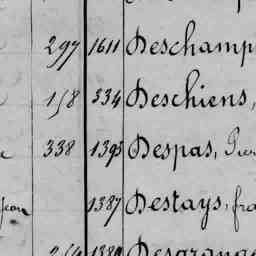 297 1611 Deschamp
158 334 Deschiens,
338 1393 Despas,
Jean 1387 Destays, fra
264 1380 Desgrange